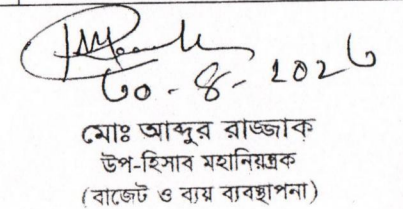 ৩০-৪-২০২৩
মোঃ আব্দুর রাজ্জাক
উপ-হিসাব মহানিয়ন্ত্রক
(বাজেট ও ব্যয় ব্যবস্থাপনা)